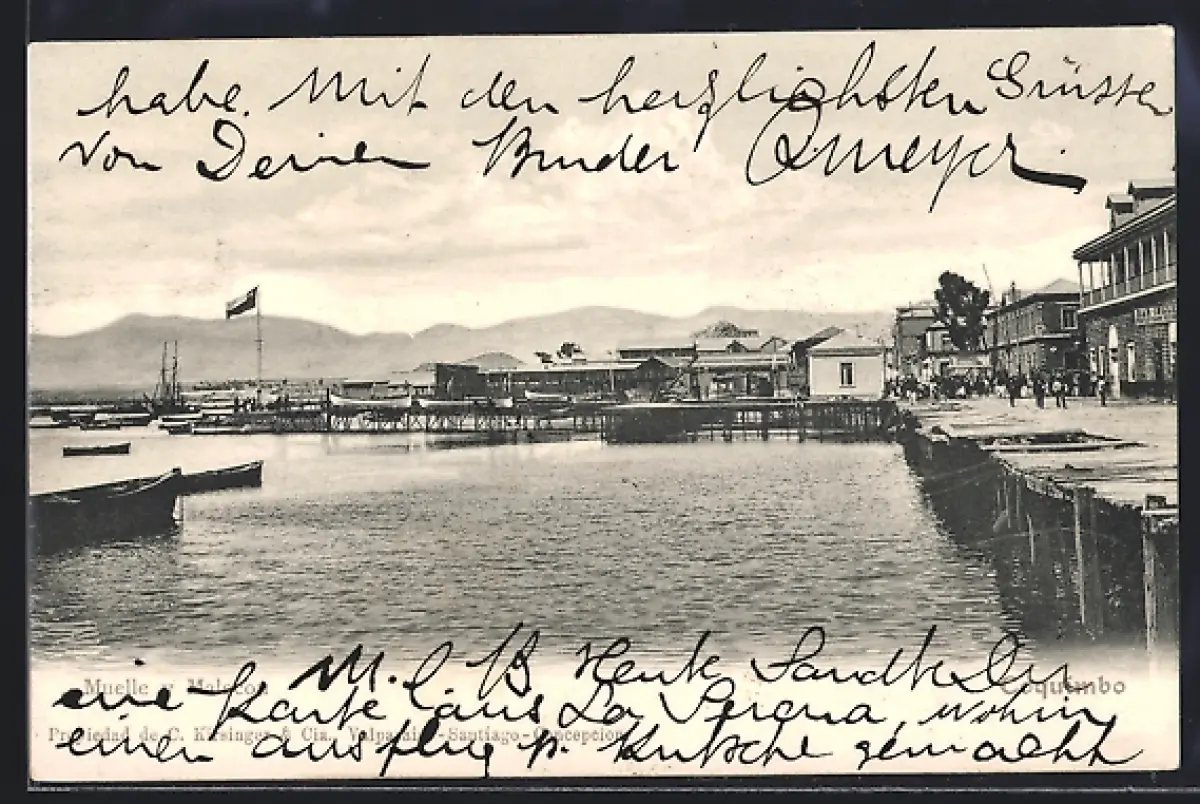 habe. Mit den herzlichsten Grüssen
Von Deinem Bruder
M. l. B Heute Sandte Dir
eine Karte aus La Serena, wohin
einen Ausflug p. Kutsche gemacht
Muelle y Malecon
Coquimbo
Propiedad de C. Kirsinger & Cia., Valparaiso-Santiago-Concepcion